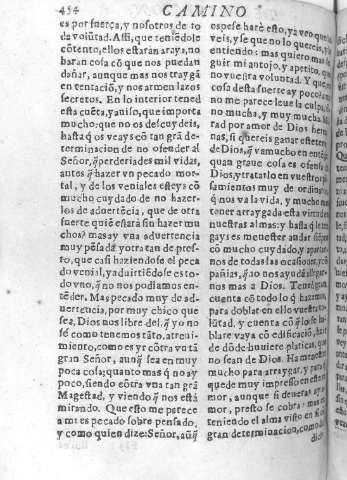 454 CAMINO
es por fuerça, y nosotros de to
da volũtad. Assi, que teniẽdole
cõtento, ellos estarán araya, no
harán cosa cõ que nos puedan
dañar, aunque mas nos traygã
en tentació, y nos armen lazos
secretos. En lo interior tened
esta cuẽta, y auiso, que importa
mucho: que no os descuydeis,
hasta q̃ os veays cõ tan grã de-
terminacion de no ofender al
Señor, q̃ perderiades mil vidas,
antes q̃ hazer vn pecado mor-
tal, y de los veniales esteys cõ
mucho cuydado de no hazer-
los de aduertẽcia, que de otra
suerte quiẽ estará sin hazer mu
chos? mas ay vna aduertencia
muy pẽsada y otra tan de pres-
to, que casi haziendose el peca
do venial, y aduirtiẽdose es to-
do vno, q̃ no nos podiamos en-
tẽder. Mas pecado muy de ad-
uertencia, por muy chico que
sea, Dios nos libre del. q̃ yo no
sé como tenemos tãto, atreui-
miento, como es yr cõtra vn tã
gran Señor, aunq̃ sea en muy
poca cosa; quanto mas q̃ no ay
poco, siendo cõtra vna tan grã
Magestad, y viendo q̃ nos está
mirando. Que esto me parece
a mi es pecado sobre pensado,
y como quien dize: Señor, aũq̃
os pese haré esto, ya veo que lo
veis, y se que no lo quereis, y lo
entiendo: mas quiero mas se-
guir mi antojo, y apetito, que
no vuestra voluntad. Y que en
cosa desta suerte ay poco, a mi
no me parece leue la culpa, si
no mucha, y muy mucha. Mi
rad por amor de Dios herma
nas, si q̃reis ganar este temor
de Dios, q̃ va mucho en entẽder
quan graue cosa es ofensa de
Dios, y tratarlo en vuestros pẽ
samientos muy de ordinario,
q̃ nos va la vida, y mucho mas
tener arraygada esta virtud en
nuestras almas: y hasta q̃ le ten
gays es menester andar siẽpre
cõ mucho cuydado, y apartar
nos de todas las ocasiones, y cõ
pañias, q̃ no nos ayudẽ a llegar
nos mas a Dios. Tened gran
cuenta cõ todo lo q̃ hazemos,
para doblar en ello vuestra vo
lũtad, y cuenta cõ q̃ lo q̃ se ha-
blare vaya cõ edificació, huyr
de dõde huuiere platicas, que
no sean de Dios. Ha menester
mucho para arraygar, y para q̃
quede muy impresso en este te
mor, aunque si de veras ay a-
mor, presto se cobra: mas en
teniendo el alma visto en si cõ
gran determinacion, como
dicho